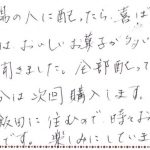 場の人に配ったら、喜ば
はおいしいお菓子が多い
聞きました。全部配って
分は次回購入します。
飯田に住むので時々お
です。楽しみにしていま